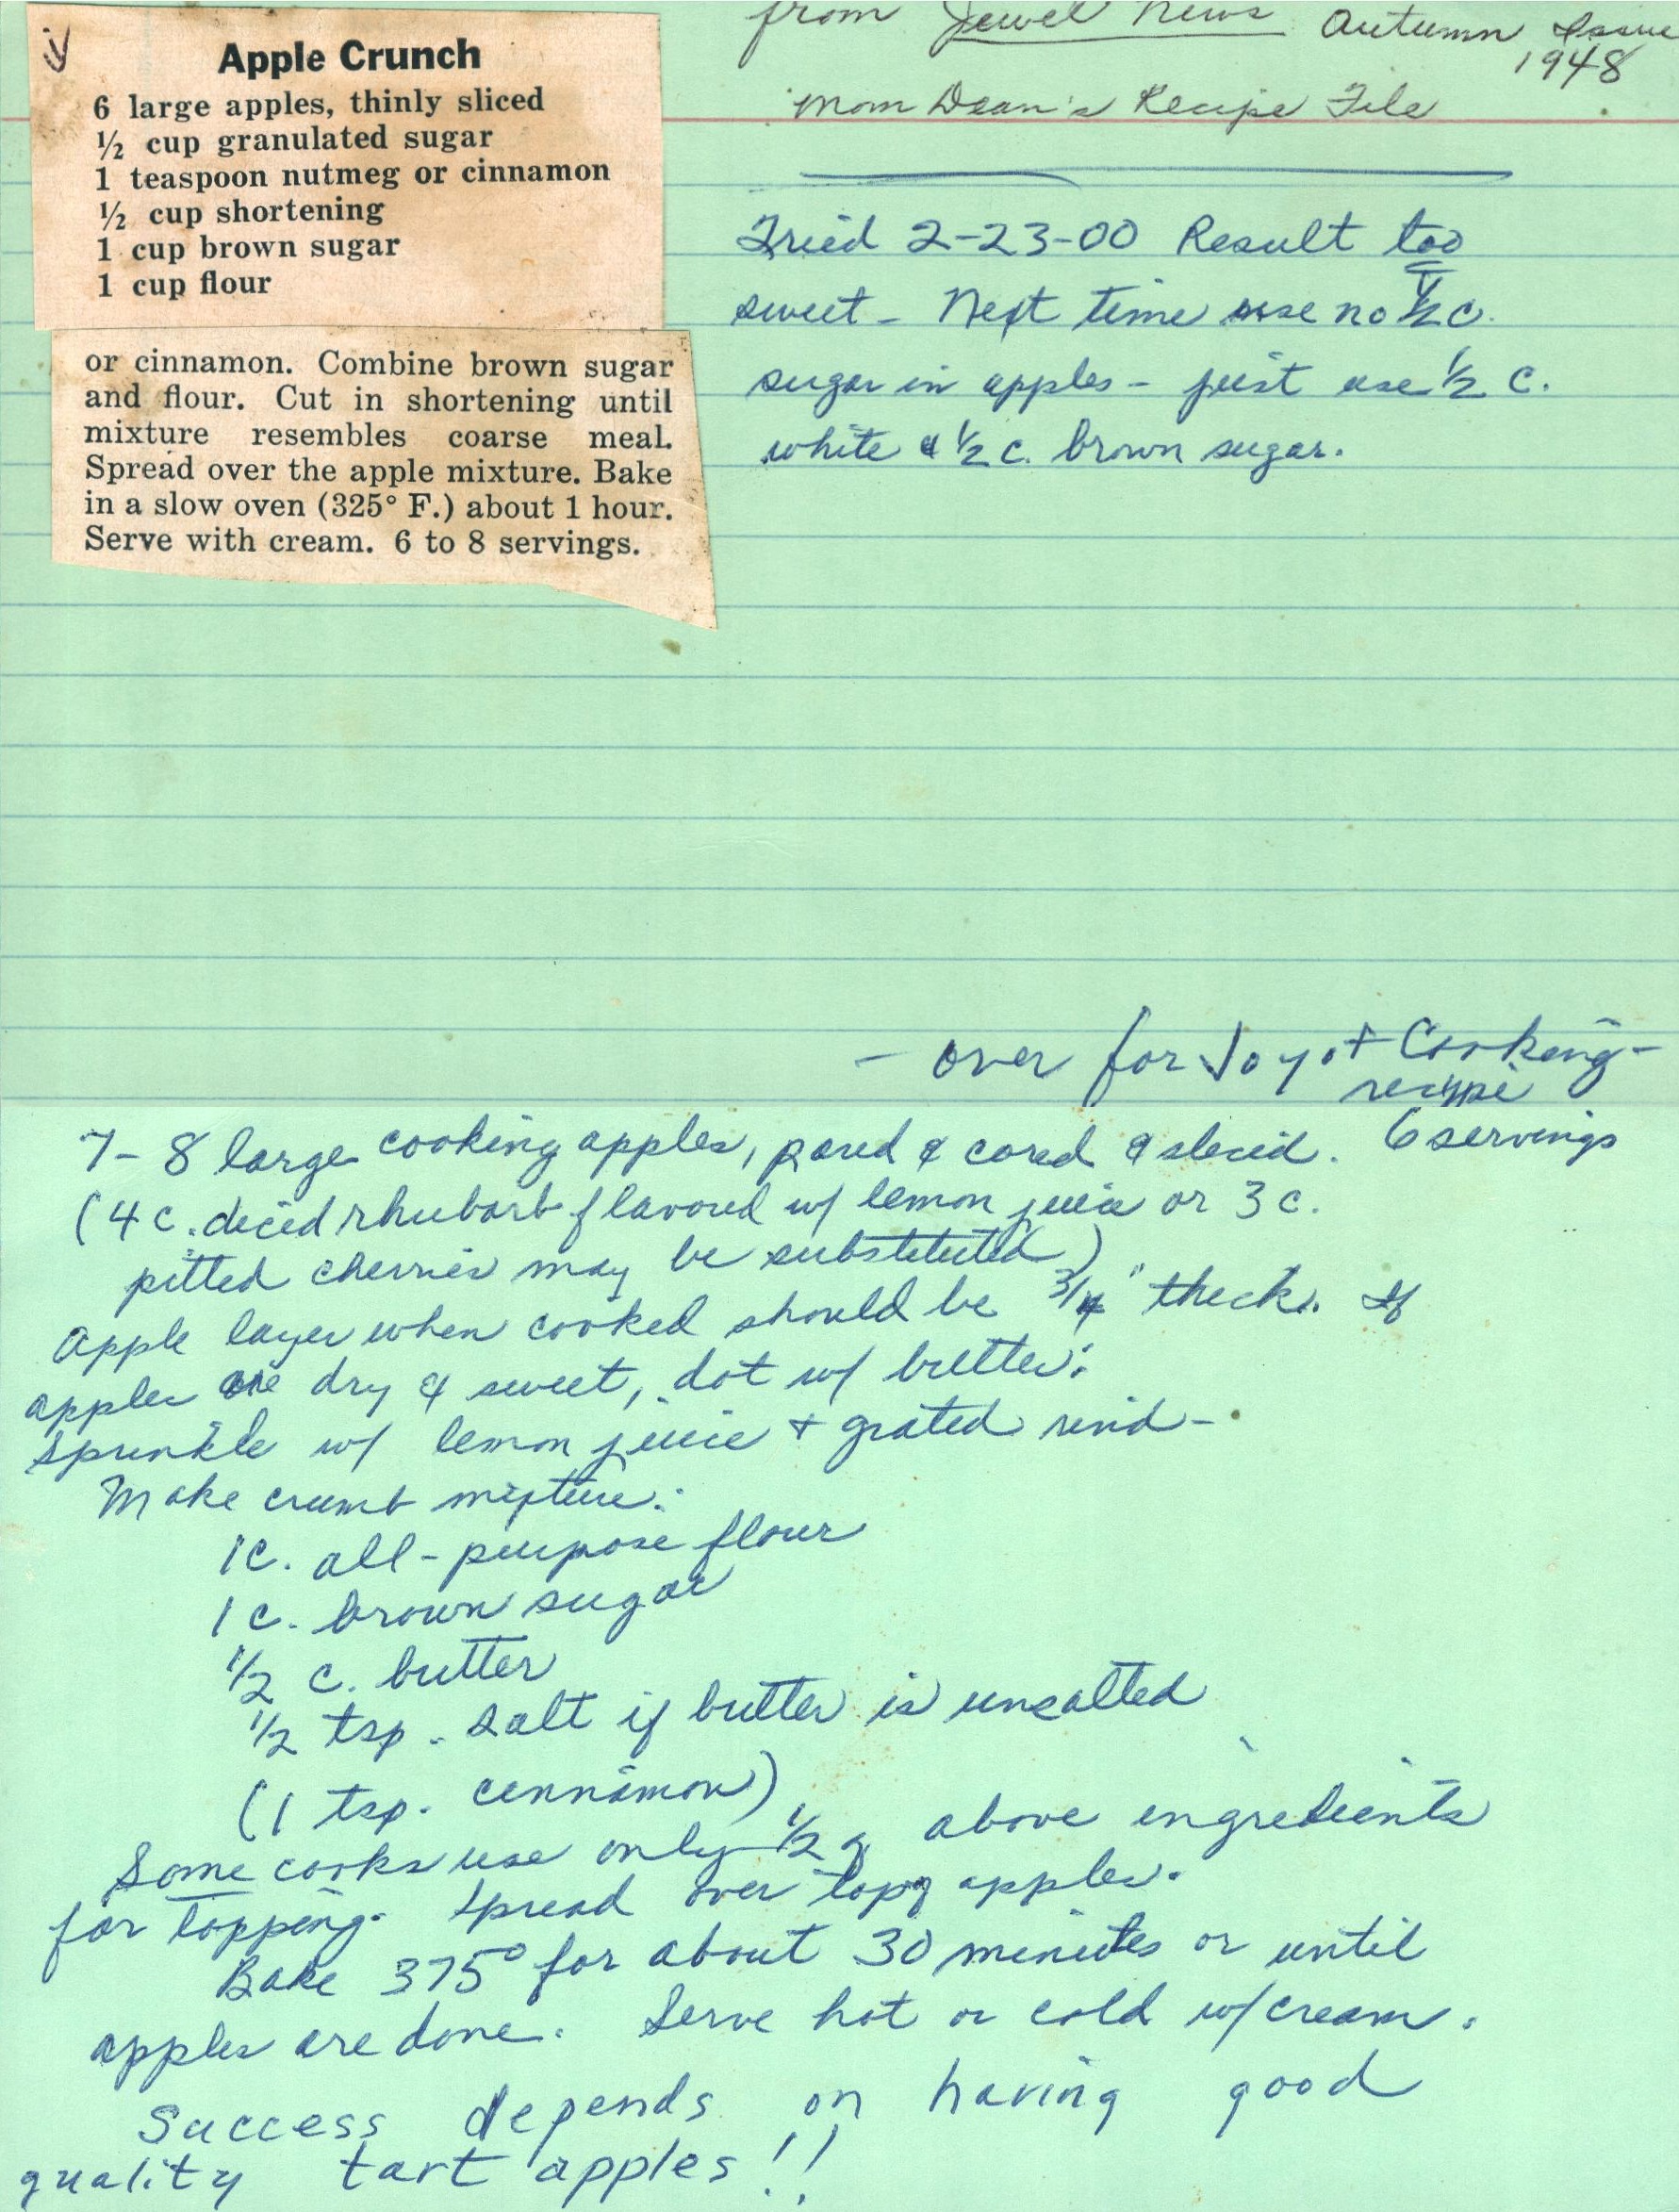 Apple Crunch
6 large apples, thinly sliced
½ cup granulated sugar
1 teaspoon nutmeg or cinnamon
½ cup shortening
1 cup brown sugar
1 cup flour
or cinnamon. Combine brown sugar
and flour. Cut in shortening until
mixture resembles coarse meal.
Spread over the apple mixture. Bake
in a slow oven (325° F.) about 1 hour.
Serve with cream. 6 to 8 servings.
from Jewel News Autumn Issue
1948
Mom Dean's Recipe File
Tried 2-23-00 Result too
sweet - Next time use no ½ c.
sugar in apples - just use ½ c.
white & ½ c. brown sugar.
- over for Joy of Cooking -
recipe
7-8 large cooking apples, pared & cored & sliced. 6 servings
(4 c. diced rhubarb flavored w/ lemon juice or 3 c.
pitted cherries may be substituted)
Apple layer when cooked should be 3/4" thick. If
apples are dry & sweet, dot w/ butter;
sprinkle w/ lemon juice + grated rind -
Make crumb mixture:
1 c. all-purpose flour
1 c. brown sugar
½ c. butter
½ tsp. salt if butter is unsalted
(1 tsp. cinnamon)
Some cooks use only ½ of above ingredients
for topping. Spread over top of apples.
Bake 375° for about 30 minutes or until
apples are done. Serve hot or cold w/ cream.
Success depends on having good
quality tart apples!!